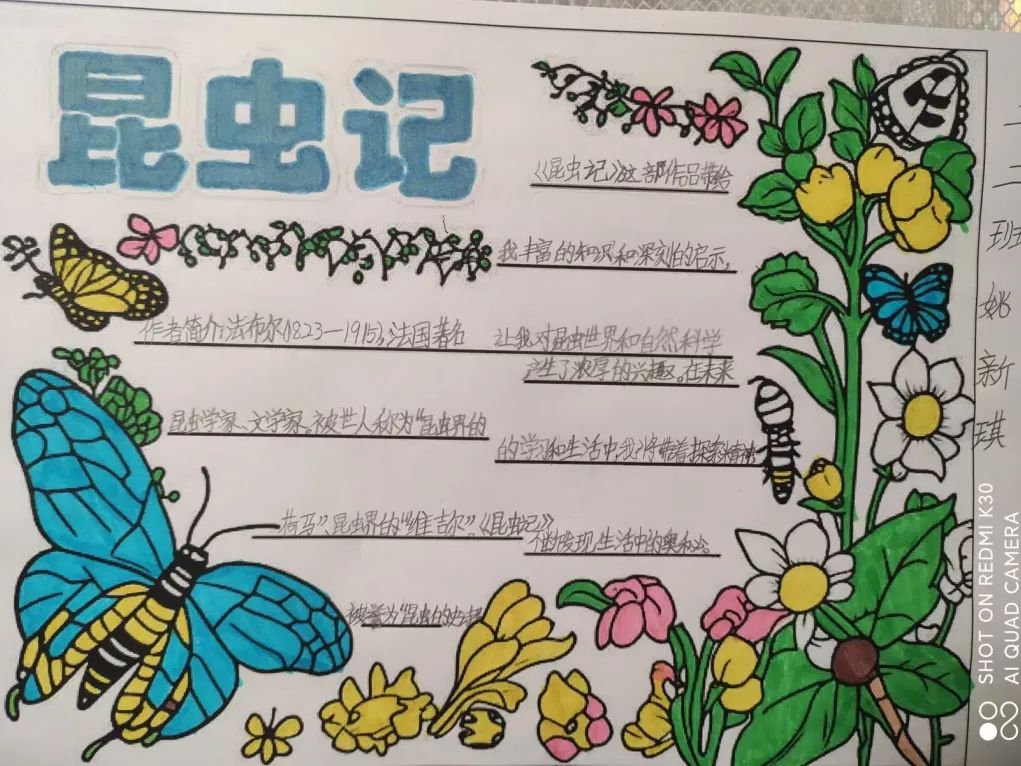 昆虫记
作者简介:法布尔(1823—1915),法国著名
昆虫学家、文学家,被世人称为"昆虫界的
荷马",昆虫界的"维吉尔"。《昆虫记》
被誉为"昆虫的史
《昆虫记》这部作品带给
我丰富的知识和深刻的启示,
让我对昆虫世界和自然科学
产生了浓厚的兴趣。在未来
的学习和生活中,我将带着探索精神
发现生活中的奥秘。
二
二
班
姚
新
琪
SHOT ON REDMI K30
AI QUAD CAMERA